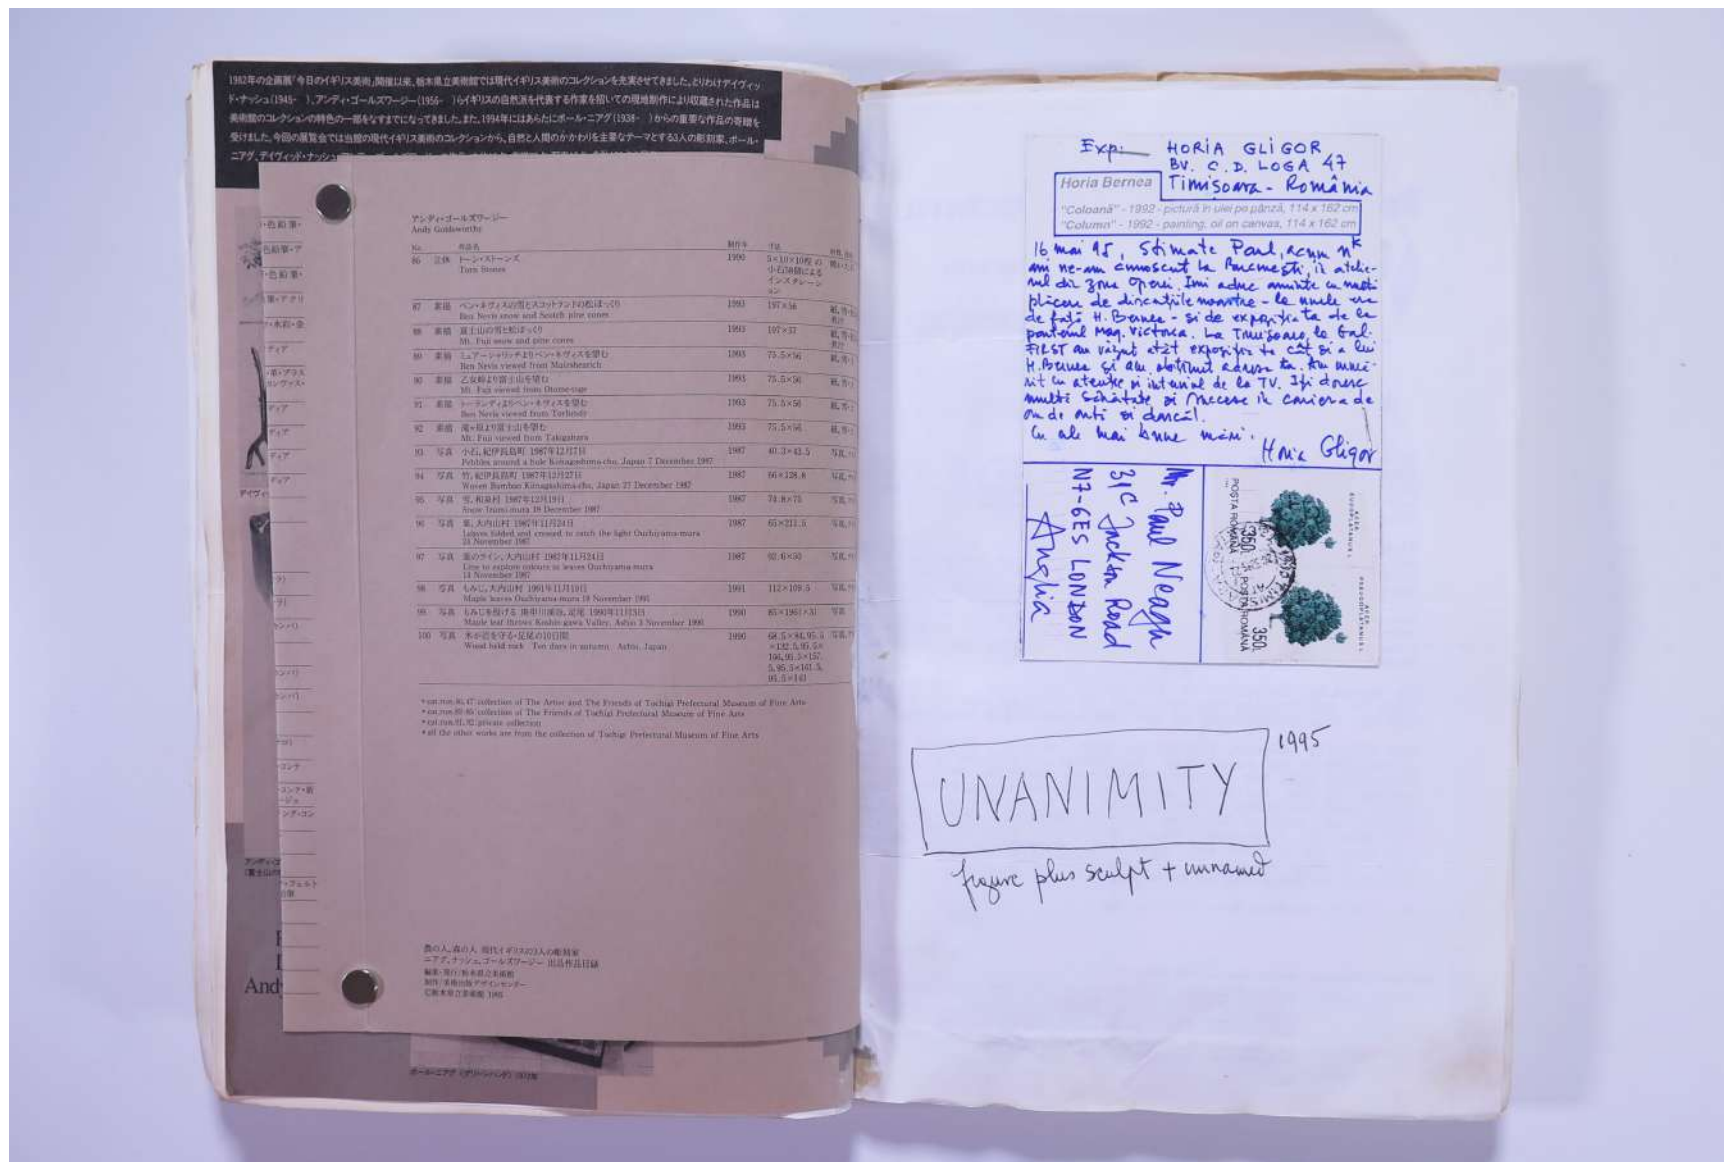 1982年の企画展「今日のイギリス美術」開催以来、栃木県立美術館では現代イギリス美術のコレクションを充実させてきました。とりわけデイヴィッ
ド・ナッシュ(1945- )、アンディ・ゴールズワージー(1956- )らイギリスの自然派を代表する作家を招いての現地制作により収蔵された作品は
美術館のコレクションの特色の一部をなすまでになってきました。また、1994年にはあらたにポール・ニアグ(1938- )からの重要な作品の寄贈を
受けました。今回の展覧会では当館の現代イギリス美術のコレクションから、自然と人間のかかわりを主要なテーマとする3人の彫刻家、ポール・
ニアグ、デイヴィッド・ナッシュ
アンディ・ゴールズワージー
Andy Goldsworthy
No. 作品名 制作年 寸法
86 立体 トーン・ストーンズ 1990 5×10×10程の
Torn Stones 小石58個による
インスタレーシ
ョン
87 素描 ベン・ネヴィスの雪とスコットランドの松ぼっくり 1993 197×56
Ben Nevis snow and Scotch pine cones
88 素描 富士山の雪と松ぼっくり 1993 197×57
Mt. Fuji snow and pine cones
89 素描 ミュアーシャリッチよりベン・ネヴィスを望む 1993 75.5×56
Ben Nevis viewed from Muirshearich
90 素描 乙女峠より富士山を望む 1993 75.5×56
Mt. Fuji viewed from Otome-toge
91 素描 トーランディよりベン・ネヴィスを望む 1993 75.5×56
Ben Nevis viewed from Torlundy
92 素描 滝ヶ原より富士山を望む 1993 75.5×56
Mt. Fuji viewed from Takigahara
93 写真 小石、紀伊長島町 1987年12月7日 1987 40.3×43.5
Pebbles around a hole Kiinagashima-cho, Japan 7 December 1987
94 写真 竹、紀伊長島町 1987年12月27日 1987 66×128.8
Woven Bamboo Kiinagashima-cho, Japan 27 December 1987
95 写真 雪、和泉村 1987年12月19日 1987 74.8×75
Snow Izumi-mura 19 December 1987
96 写真 葉、大内山村 1987年11月24日 1987 65×211.5
Leaves folded and creased to catch the light Ouchiyama-mura
24 November 1987
97 写真 葉のライン、大内山村 1987年11月24日 1987 92.6×50
Line to explore colours in leaves Ouchiyama-mura
14 November 1987
98 写真 もみじ、大内山村 1991年11月19日 1991 112×109.5
Maple leaves Ouchiyama-mura 19 November 1991
99 写真 もみじを投げる 庚申川渓谷、足尾 1990年11月3日 1990
Maple leaf throws Koshin-gawa Valley, Ashio 3 November 1990
100 写真 木が岩を守る・足尾の10日間 1990 68.5×84, 95.5
Wood held rock Ten days in autumn Ashio, Japan ×132.5, 95.5×
166, 95.5×157.
5, 95.5×161.5,
95.5×143
*cat.nos.46,47: collection of The Artist and The Friends of Tochigi Prefectural Museum of Fine Arts
collection of The Friends of Tochigi Prefectural Museum of Fine Arts
private collection
*all the other works are from the collection of Tochigi Prefectural Museum of Fine Arts
農の人、森の人 現代イギリスの3人の彫刻家
ニアグ、ナッシュ、ゴールズワージー 出品作品目録
編集・発行/栃木県立美術館
制作/美術出版デザインセンター
©栃木県立美術館 1995
And
Exp: HORIA GLIGOR
BV. C. D. LOGA 47
Timișoara - România
Horia Bernea
"Coloană" - 1992 - pictură în ulei pe pânză, 114 x 162 cm
"Column" - 1992 - painting, oil on canvas, 114 x 162 cm
16 mai 95, Stimate Paul, acum n
ani ne-am cunoscut la București, în atelie-
rul din zona Operei. Îmi aduc aminte cu multă
plăcere de discuțiile noastre - la unele era
de față H. Bernea - și de expoziția ta de la
pasteriul mag. Victoria. La Timișoara, la Gal.
FIRST am văzut atât expoziția ta cât și a lui
H. Bernea și am obținut adresa ta. Am urmă-
rit cu atenție și interviul de la TV. Îți doresc
multă sănătate și succese în cariera de
om de artă și dascăl.
Cu ale mai bune urări.
Horia Gligor
Mr. Paul Neagu
31C Jackson Road
N7-6ES LONDON
Anglia
ACER
PSEUDOPLATANUS L
POȘTA ROMÂNĂ
350L
ACER
PSEUDOPLATANUS L
POȘTA ROMÂNĂ
350L
UNANIMITY
1995
figure plus sculpt + unnamed